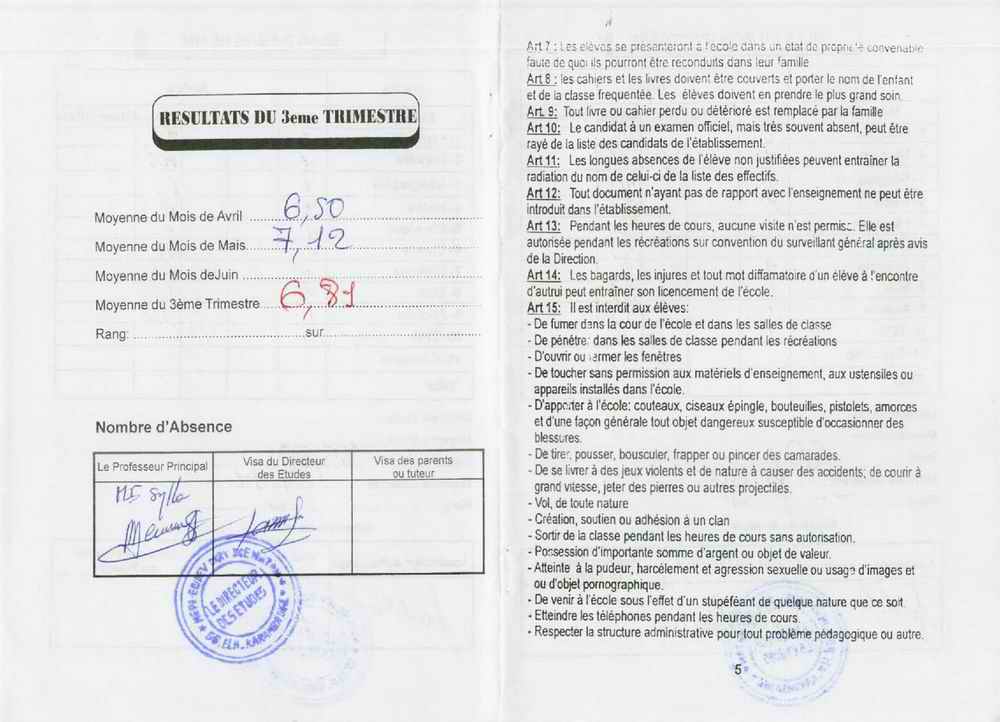 RESULTATS DU 3eme TRIMESTRE
Moyenne du Mois de Avril 6,50
Moyenne du Mois de Mais 7,12
Moyenne du Mois deJuin
Moyenne du 3ème Trimestre 6,81
Rang: sur
Nombre d'Absence
Le Professeur Principal
Visa du Directeur
des Etudes
Visa des parents
ou tuteur
Sylla
LE DIRECTEUR
DES ETUDES
Art 7 : Les élèves se présenteront à l'école dans un état de propreté convenable
faute de quoi ils pourront être reconduits dans leur famille
Art 8 : les cahiers et les livres doivent être couverts et porter le nom de l'enfant
et de la classe frequentée. Les élèves doivent en prendre le plus grand soin.
Art. 9: Tout livre ou cahier perdu ou détérioré est remplacé par la famille
Art 10: Le candidat à un examen officiel, mais très souvent absent, peut être
rayé de la liste des candidats de l'établissement.
Art 11: Les longues absences de l'élève non justifiées peuvent entraîner la
radiation du nom de celui-ci de la liste des effectifs.
Art 12: Tout document n'ayant pas de rapport avec l'enseignement ne peut être
introduit dans l'établissement.
Art 13: Pendant les heures de cours, aucune visite n'est permise. Elle est
autorisée pendant les récréations sur convention du surveillant général après avis
de la Direction.
Art 14: Les bagards, les injures et tout mot diffamatoire d'un élève à l'encontre
d'autrui peut entraîner son licencement de l'école.
Art 15: Il est interdit aux élèves:
- De fumer dans la cour de l'école et dans les salles de classe
- De pénétrer dans les salles de classe pendant les récréations
- D'ouvrir ou fermer les fenêtres
- De toucher sans permission aux matériels d'enseignement, aux ustensiles ou
appareils installés dans l'école.
- D'apporter à l'école: couteaux, ciseaux épingle, bouteuilles, pistolets, amorces
et d'une façon générale tout objet dangereux susceptible d'occasionner des
blessures.
- De tirer, pousser, bousculer, frapper ou pincer des camarades.
- De se livrer à des jeux violents et de nature à causer des accidents; de courir à
grand vitesse, jeter des pierres ou autres projectiles.
- Vol, de toute nature
- Création, soutien ou adhésion à un clan
- Sortir de la classe pendant les heures de cours sans autorisation.
- Possession d'importante somme d'argent ou objet de valeur.
- Atteinte à la pudeur, harcèlement et agression sexuelle ou usage d'images et
ou d'objet pornographique.
- De venir à l'école sous l'effet d'un stupéféant de quelque nature que ce soit.
- Etteindre les téléphones pendant les heures de cours.
- Respecter la structure administrative pour tout problème pédagogique ou autre.
5